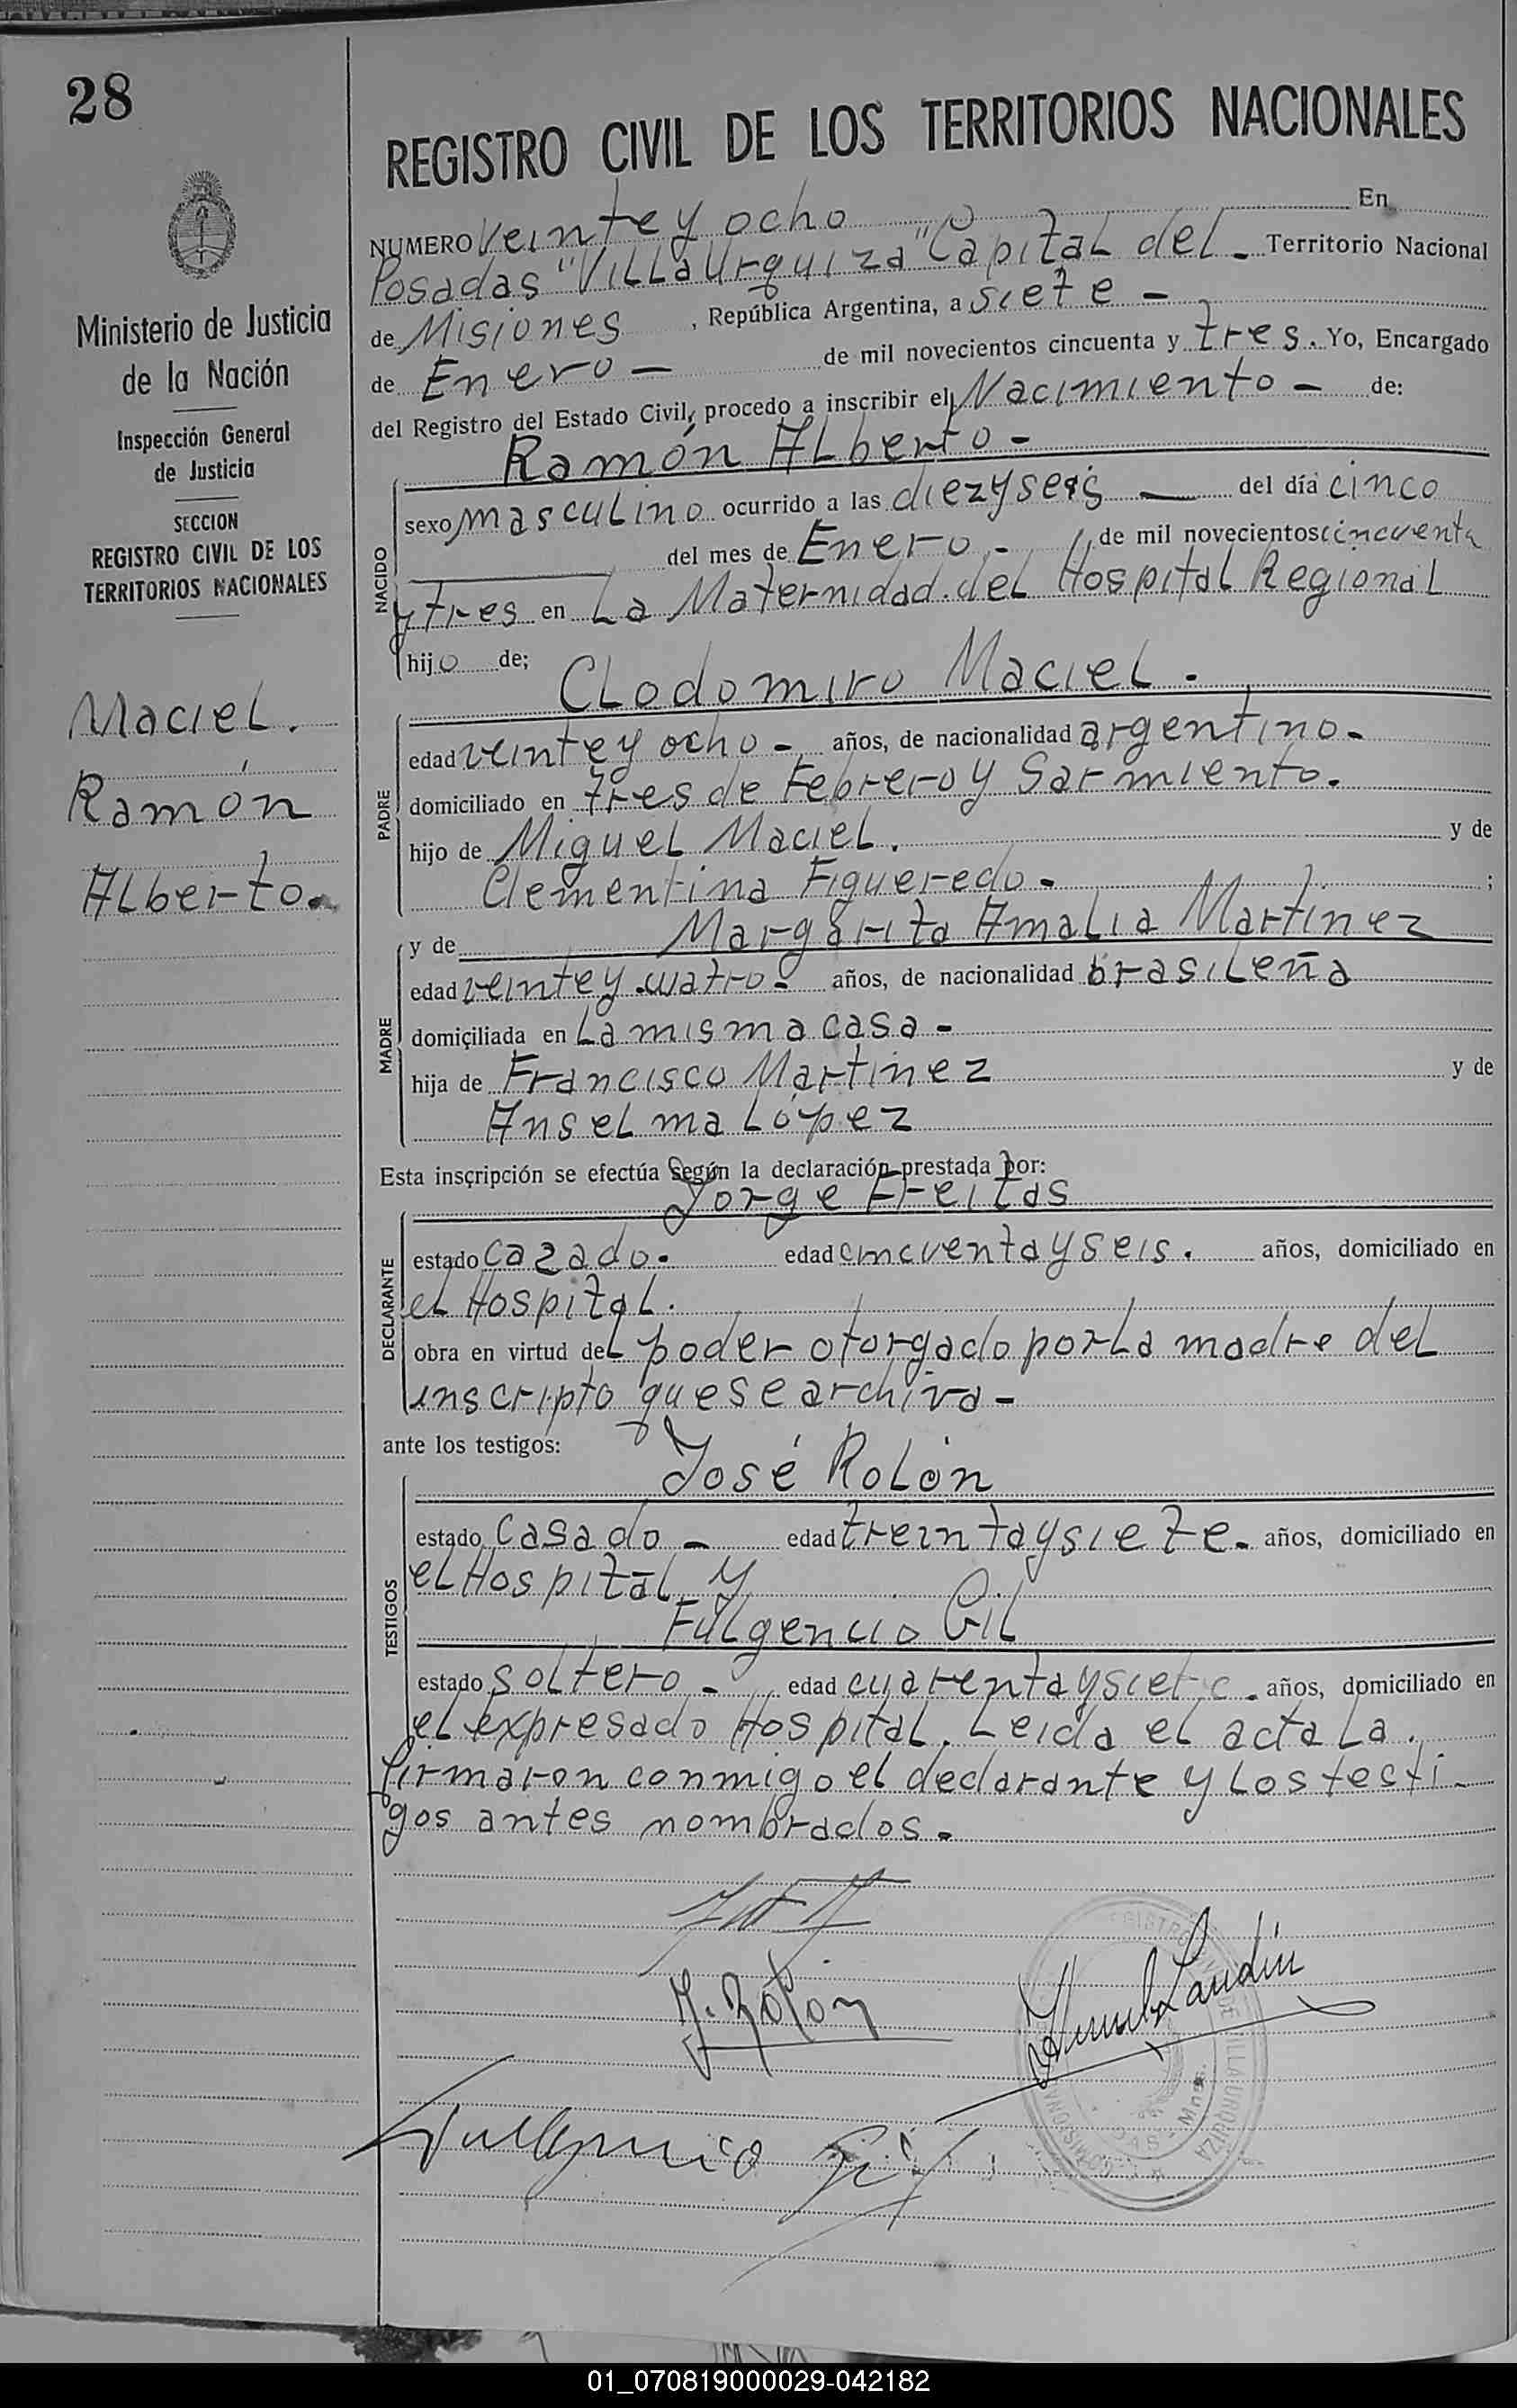 28
Ministerio de Justicia
de la Nación
Inspección General
de Justicia
SECCION
REGISTRO CIVIL DE LOS
TERRITORIOS NACIONALES
Maciel.
Ramón
Alberto.
REGISTRO CIVIL DE LOS TERRITORIOS NACIONALES
NUMERO Veinte y ocho En
Posadas "Villa Urquiza" Capital del - Territorio Nacional
de Misiones, República Argentina, a siete -
de Enero - de mil novecientos cincuenta y tres. Yo, Encargado
del Registro del Estado Civil, procedo a inscribir el Nacimiento - de:
Ramón Alberto -
NACIDO
sexo masculino ocurrido a las diez y seis — del día cinco
del mes de Enero - de mil novecientos cincuenta
y tres en La Maternidad del Hospital Regional
hijo de;
Clodomiro Maciel.
PADRE
edad veinte y ocho - años, de nacionalidad argentino -
domiciliado en tres de Febrero y Sarmiento.
hijo de Miguel Maciel. y de
Clementina Figueredo - ;
y de Margarita Amalia Martinez
MADRE
edad veinte y cuatro - años, de nacionalidad brasileña
domiciliada en La misma casa -
hija de Francisco Martinez y de
Anselma López
Esta inscripción se efectúa según la declaración prestada por:
Jorge Freitas
DECLARANTE
estado cazado. edad cincuenta y seis. años, domiciliado en
el Hospital.
obra en virtud del poder otorgado por La madre del
inscripto que se archiva -
ante los testigos:
José Rolón
TESTIGOS
estado casado - edad treinta y siete. años, domiciliado en
el Hospital y
Fulgencio Gil
estado soltero - edad cuarenta y siete. años, domiciliado en
el expresado Hospital. Leida el acta La
firmaron conmigo el declarante y Los testi-
gos antes nombrados.
J. Rolon
Fulgencio Gil
01_070819000029-042182